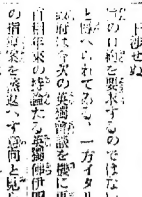 上渉せぬ
けの日和を要求するのではない
と傳へられてゐる、一方イタリ
政府は今次の英獨會談を機に更
首相年來の持論たる英獨佛伊四
の指導案を蒸返へす意向と見ら